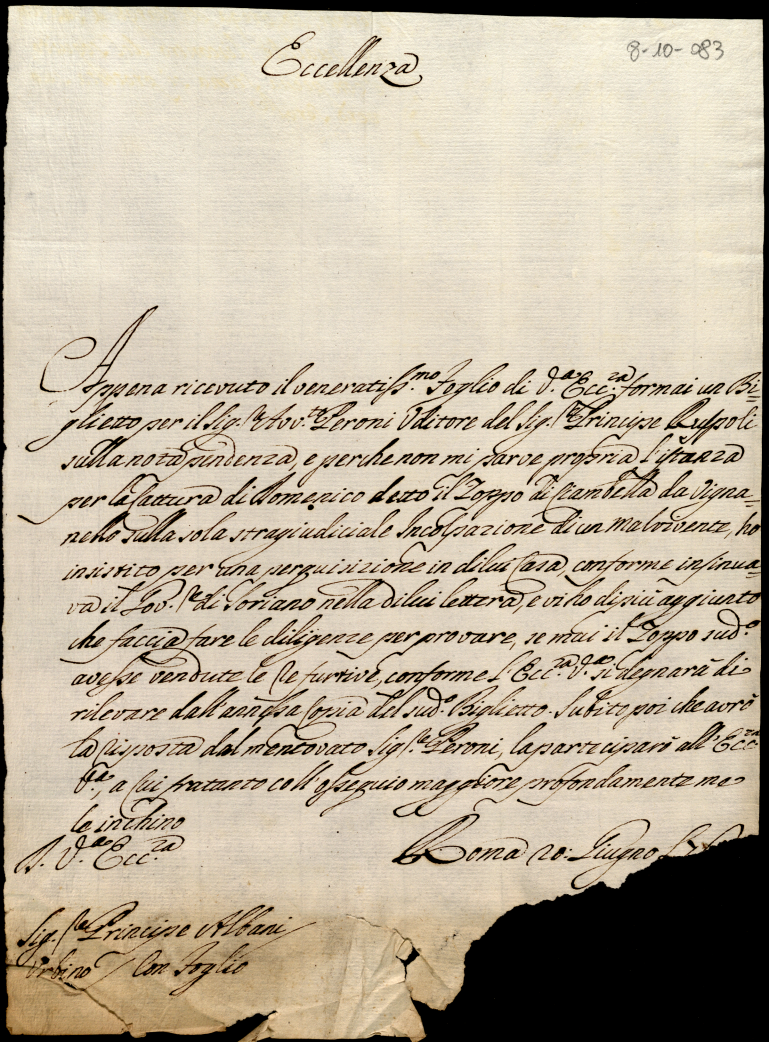 8-10-083
Eccellenza
Appena ricevuto il veneratiss.mo Foglio di V.a Ecc.za formai un Bi=
glietto per il Sig.re Avv.to Peroni Uditore del Sig.re Principe Ruspoli
sulla nota pendenza, e perche non mi parve propria l'istanza
per la Cattura di Domenico detto il Zoppo di Ciambella da Vigna=
nello sulla sola stragiudiciale Incolpazione di un malvivente, ho
insistito per una perquisizione in di lui Casa, conforme insinua=
va il Gov.re di Soriano nella di lui lettera, e vi ho di più aggiunto
che faccia fare le diligenze per provare, se mai il Zoppo sud.o
avesse vendute le Re furtive, conforme l'Ecc.za V.a si degnarà di
rilevare dall'annessa Copia del sud.o Biglietto. Subito poi che avrò
la risposta dal mentovato Sig.re Peroni, la parteciparò all'Ecc.za
V.a, a cui fratanto coll'ossequio maggiore profondamente me
le inchino
D. V.a Ecc.za
Roma 20: Giugno
Sig.re Principe Albani
Urbino / Con Foglio